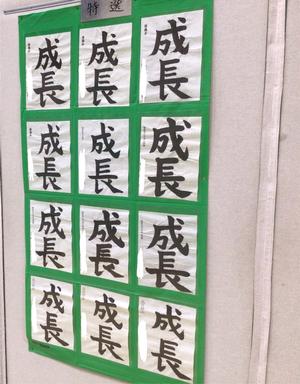 特選
成長
成長
成長
成長
成長
成長
成長
成長
成長
成長
成長
成長